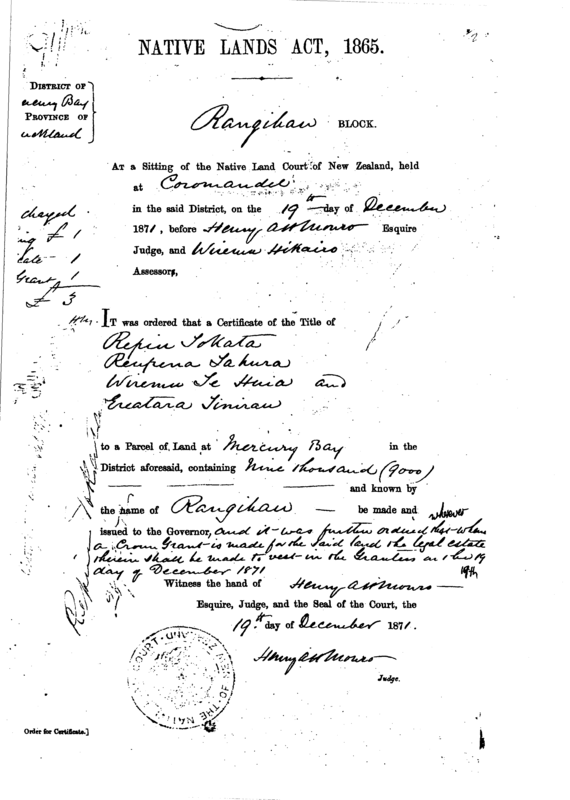 NATIVE LANDS ACT, 1865.
DISTRICT OF
PROVINCE OF
Rangihau BLOCK.
AT a Sitting of the Native Land Court of New Zealand, held
at Coromandel
in the said District, on the 19th day of December
1871, before Henry A H Monro Esquire
Judge, and Wiremu Hikairo
Assessor,
charged
ing £ 1
cate - 1
Grant 1
£ 3
IT was ordered that a Certificate of the Title of
Repiu Tokata
Reupena Tahura
Wiremu Te Huia and
Ereatara Tinirau
to a Parcel of Land at Mercury Bay in the
District aforesaid, containing Nine thousand (9000)
and known by
the name of Rangihau — be made and
issued to the Governor, and it was further ordered that when
a Crown Grant is made for the said land the legal estate
therein shall be made to vest in the Grantees on the 19
day of December 1871 19th
Witness the hand of Henry A H Monro
Esquire, Judge, and the Seal of the Court, the
19th day of December 1871.
Henry A H Monro
Judge.
Order for Certificate.]